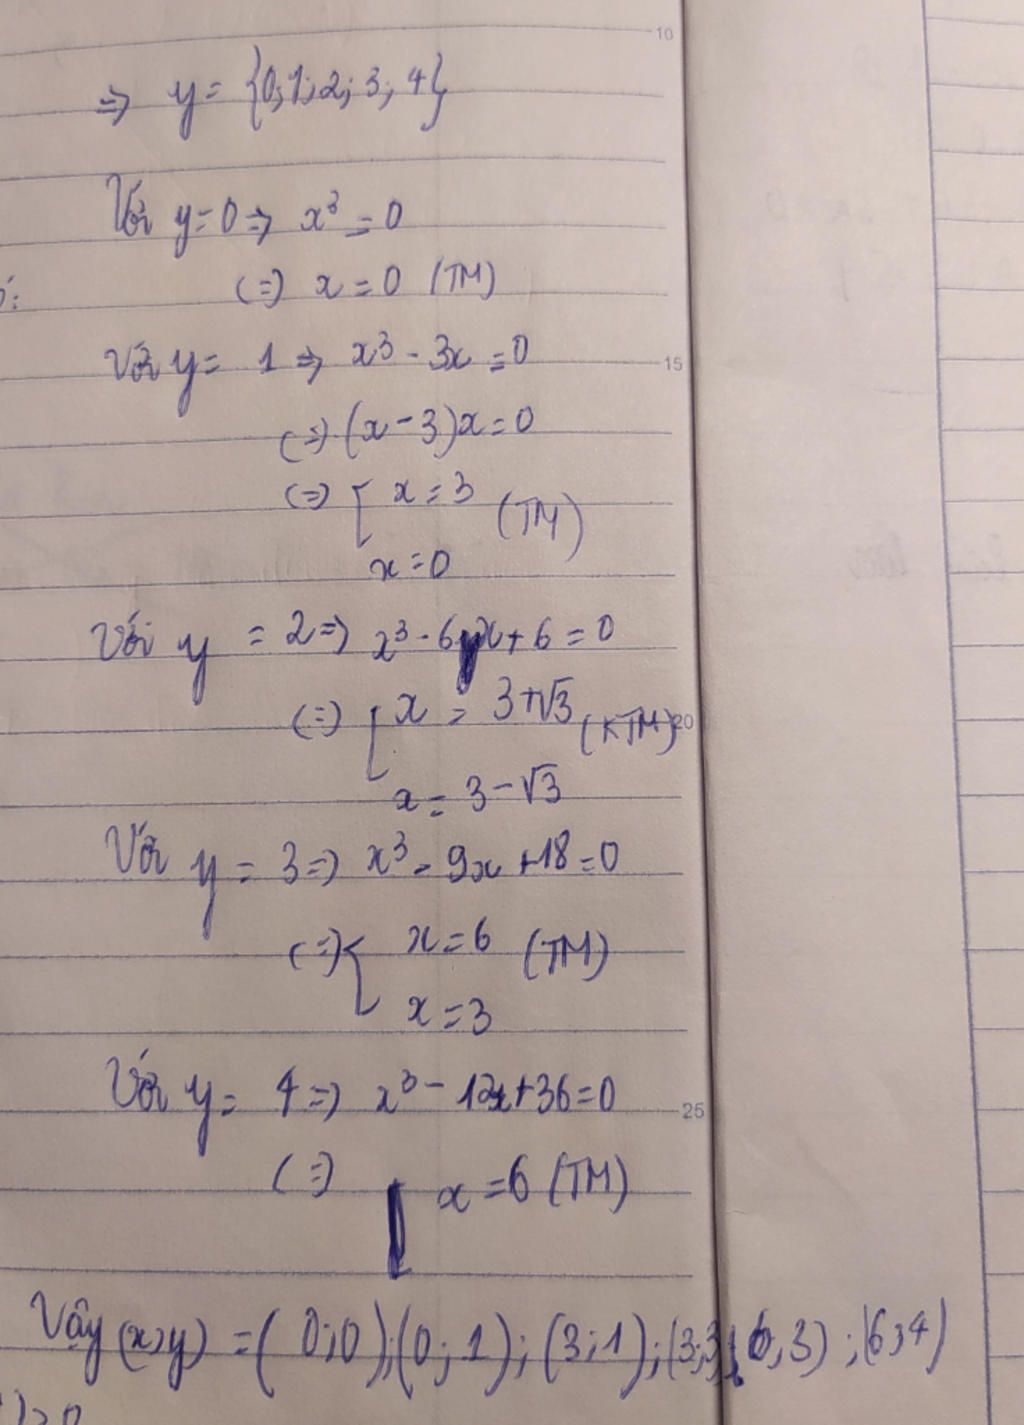 10
=> y = {0; 1; 2; 3; 4}
Với y = 0 => x³ = 0
(=) x = 0 (TM)
Với y = 1 => x³ - 3x = 0
15
(=) (x - 3)x = 0
(=) [ x = 3 (TM)
x = 0
Với y = 2 => x³ - 6x + 6 = 0
(=) [ x = 3+√3 (KTM)
20
x = 3 - √3
Với y = 3 => x³ - 9x + 18 = 0
(=) [ x = 6 (TM)
x = 3
Với y = 4 => x³ - 12x + 36 = 0
25
(=) x = 6 (TM)
Vậy (x;y) = (0;0); (0;1); (3;1); (3;3); (6;3); (6;4)